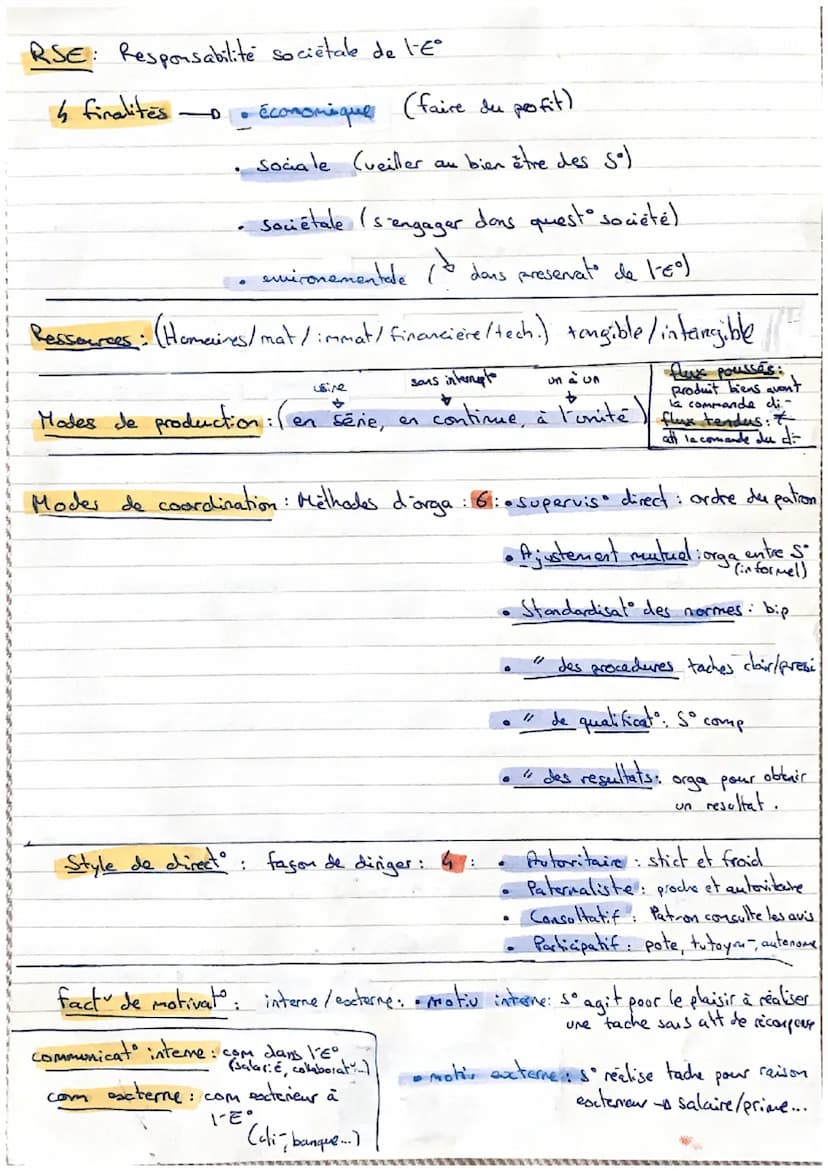 RSE : Responsabilité sociétale de l'E°
4 finalités → • économique (faire du profit)
• sociale (veiller au bien être des S°)
• sociétale (s'engager dans quest° société)
• environementale (↳ dans preservat° de l'E°)
Ressources : (Humaines/mat/immat/financière/tech.) tangible/intangible
usine sans interrupt° un à un
Modes de production : (en série, en continue, à l'unité)
flux poussés :
produit biens avant
la commande cli-
flux tendus : ≠
att la comande du cli-
Modes de coordination : Méthodes d'orga : 6 : • supervis° direct : ordre du patron
• Ajustement mutuel : orga entre S°
(informel)
• Standardisat° des normes : bip
• " des procedures taches clair/preci
• " de qualificat° : S° comp
• " des resultats : orga pour obtenir
un resultat.
Style de direct° : façon de diriger : 4 : • Autoritaire : stict et froid
• Paternaliste : proche et autoritaire
• Consultatif : Patron consulte les avis
• Participatif : pote, tutoym-, autonome
fact^r de motivat° : interne/externe : • motiv interne : S° agit poor le plaisir à réaliser
une tache sans att de récompense
communicat° interne : com dans l'E°
(salarié, collaborat^r...)
com externe : com exterieur à
l'E°
(cli-, banque...)
• motiv externe : S° réalise tache pour raison
exterieur → salaire/prime...